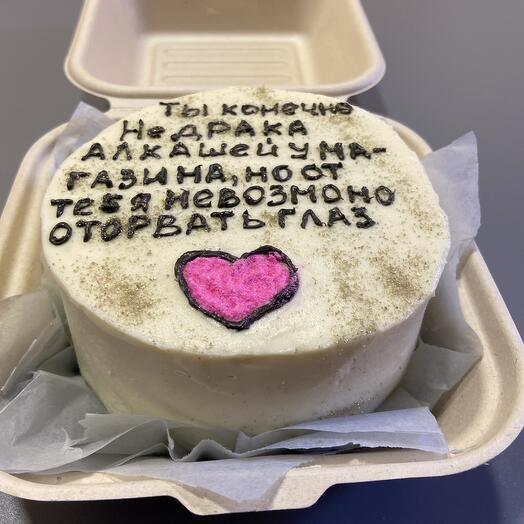 ТЫ конечно
Не ДРАКА
АЛКАШЕЙ У МА-
ГАЗИНА, НО ОТ
тебя невозмоно
ОТОРВАТЬ ГЛАЗ